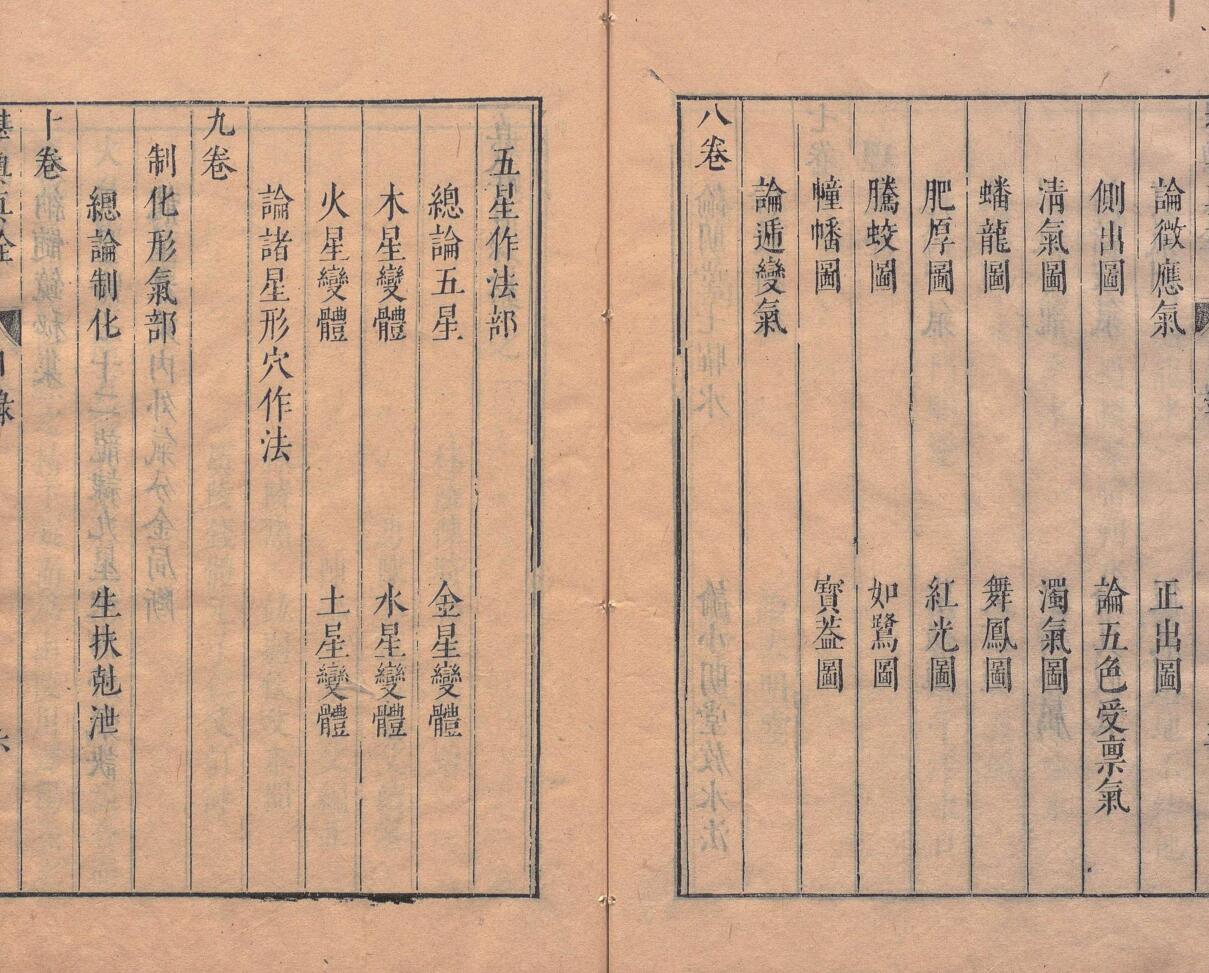 論徴應氣 正出圖
側出圖 論五色受禀氣
淸氣圖 濁氣圖
蟠龍圖 舞鳳圖
肥厚圖 紅光圖
騰蛟圖 如鷺圖
幢幡圖 寳葢圖
論遁變氣
八卷
五星作法部
總論五星 金星變體
木星變體 水星變體
火星變體 土星變體
論諸星形穴作法
九卷
制化形氣部
總論制化 生扶尅泄
十卷
目錄